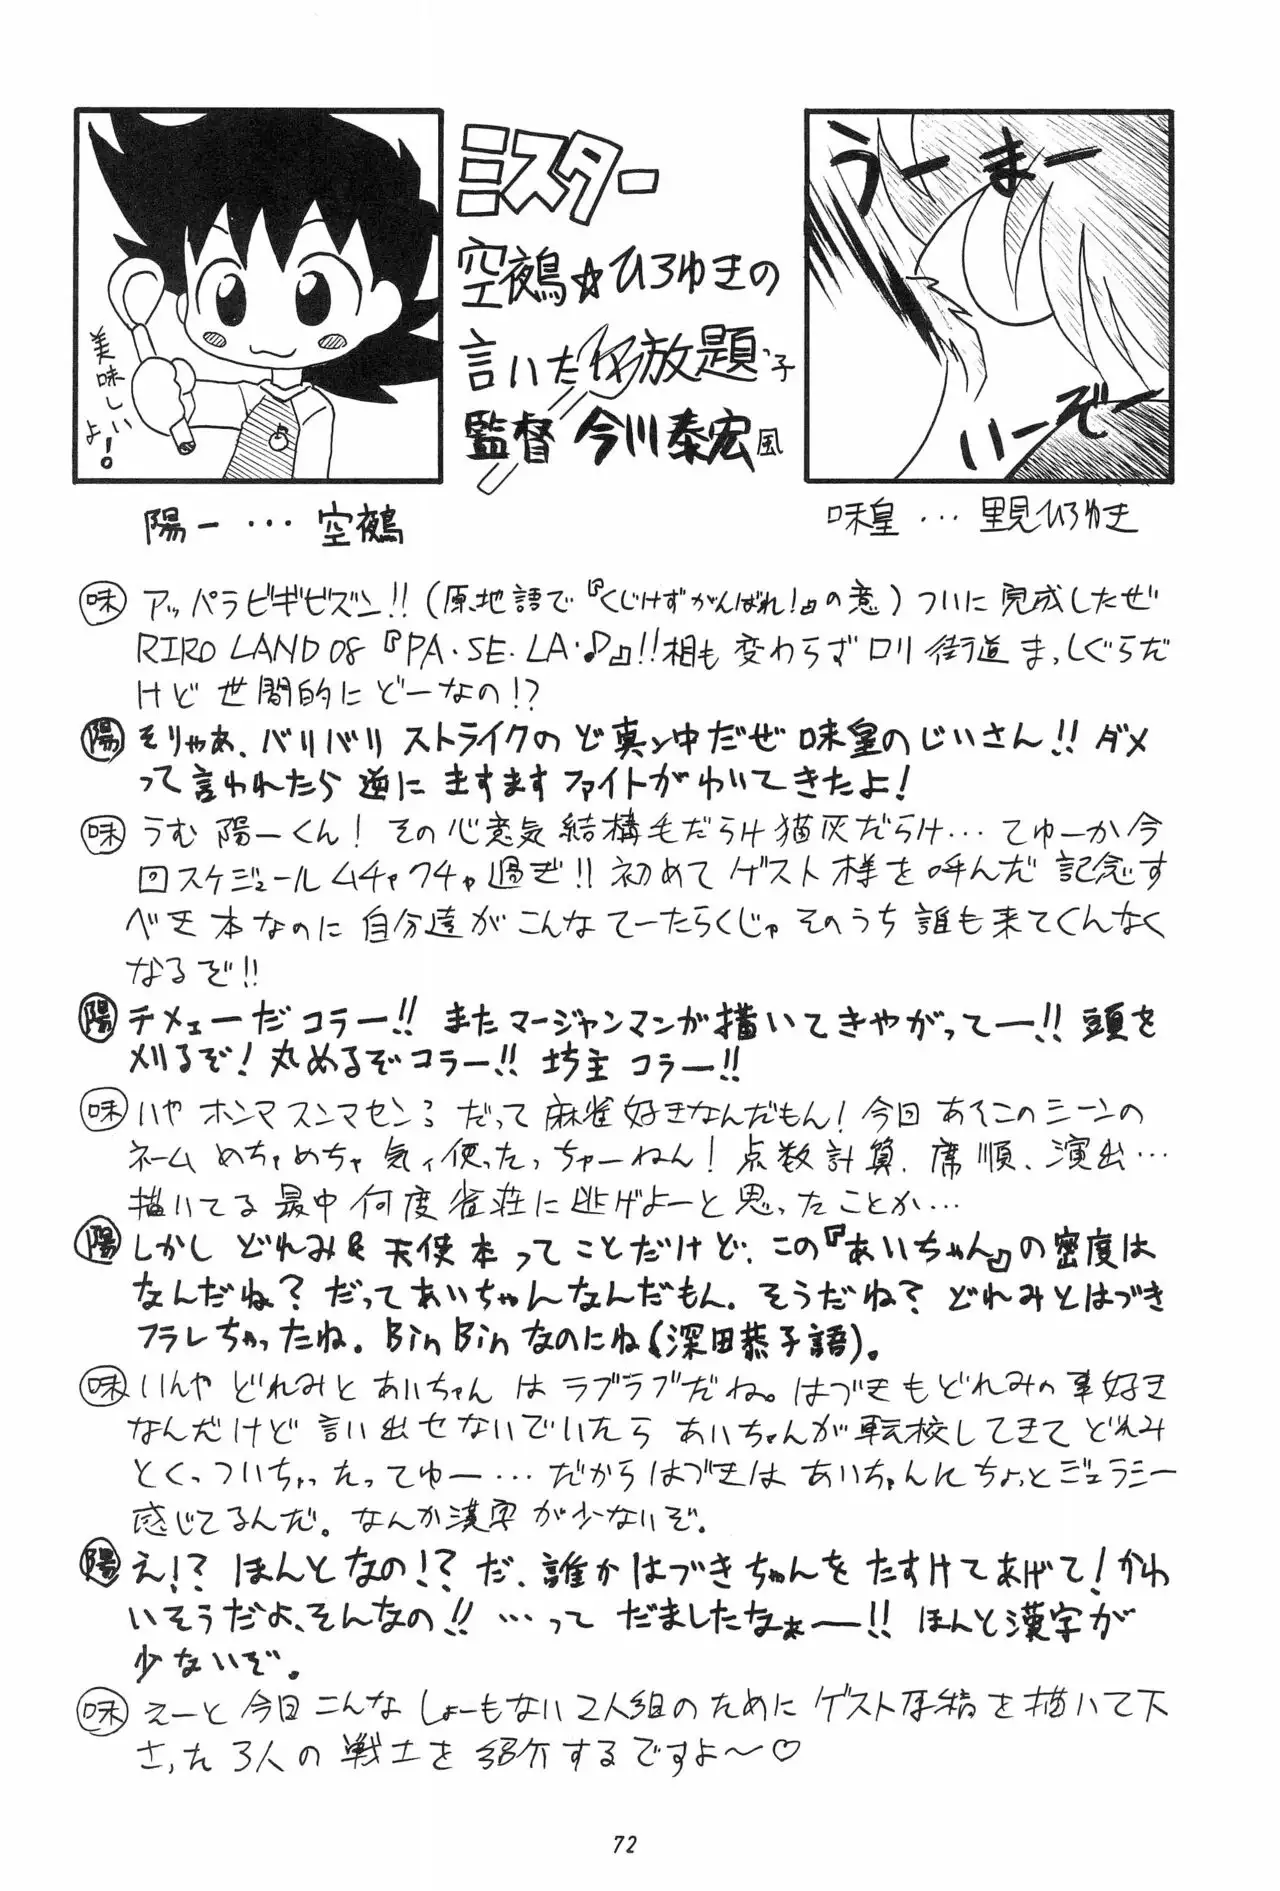 美味しいよ!
ミスター
空鵺☆ひろゆきの
言いたい放題
監督 今川泰宏風
うーまー
いーぞー
陽一…空鵺
味皇…里見ひろゆき
味 アッパラビギビズン!!(原地語で『くじけずがんばれ!』の意)ついに完成したぜ
RIRO LAND 08『PA・SE・LA・♪』!!相も変わらずロリ街道まっしぐらだ
けど世間的にどーなの!?
陽 そりゃあ、バリバリストライクのど真ン中だぜ味皇のじいさん!!ダメ
って言われたら逆にますますファイトがわいてきたよ!
味 うむ陽一くん!その心意気結構毛だらけ猫灰だらけ…てゆーか今
回スケジュールムチャクチャ過ぎ!!初めてゲスト様を呼んだ記念す
べき本なのに自分達がこんなてーたらくじゃそのうち誰も来てくんなく
なるぞ!!
陽 チメェーだコラー!!またマージャンマンガ描いてきやがってー!!頭を
刈るぞ!丸めるぞコラー!!坊主コラー!!
味 いやホンマスンマセンろだって麻雀好きなんだもん!今回あそこのシーンの
ネームめちゃめちゃ気ィ使ったっちゅーねん!点数計算、席順、演出…
描いてる最中何度雀荘に逃げよーと思ったことか…
陽 しかしどれみ&天使本ってことだけど、この『あいちゃん』の密度は
なんだね?だってあいちゃんなんだもん。そうだね?どれみとはづき
フラレちゃったね。Bin Binなのにね(深田恭子語)。
味 いんやどれみとあいちゃんはラブラブだね。はづきもどれみの事好き
なんだけど言い出せないでいたらあいちゃんが転校してきてどれみ
とくっついちゃったってゆー…だからはづきはあいちゃんにちょっとジェラシー
感じてるんだ。なんか漢字が少ないぞ。
陽 え!?ほんとなの!?だ、誰かはづきちゃんをたすけてあげて!かわ
いそうだよ、そんなの!!…ってだましたなぁー!!ほんと漢字が
少ないぞ。
味 えーと今回こんなしょーもない2人組のためにゲスト原稿を描いて下
さった3人の戦士を紹介するですよ〜♡
72